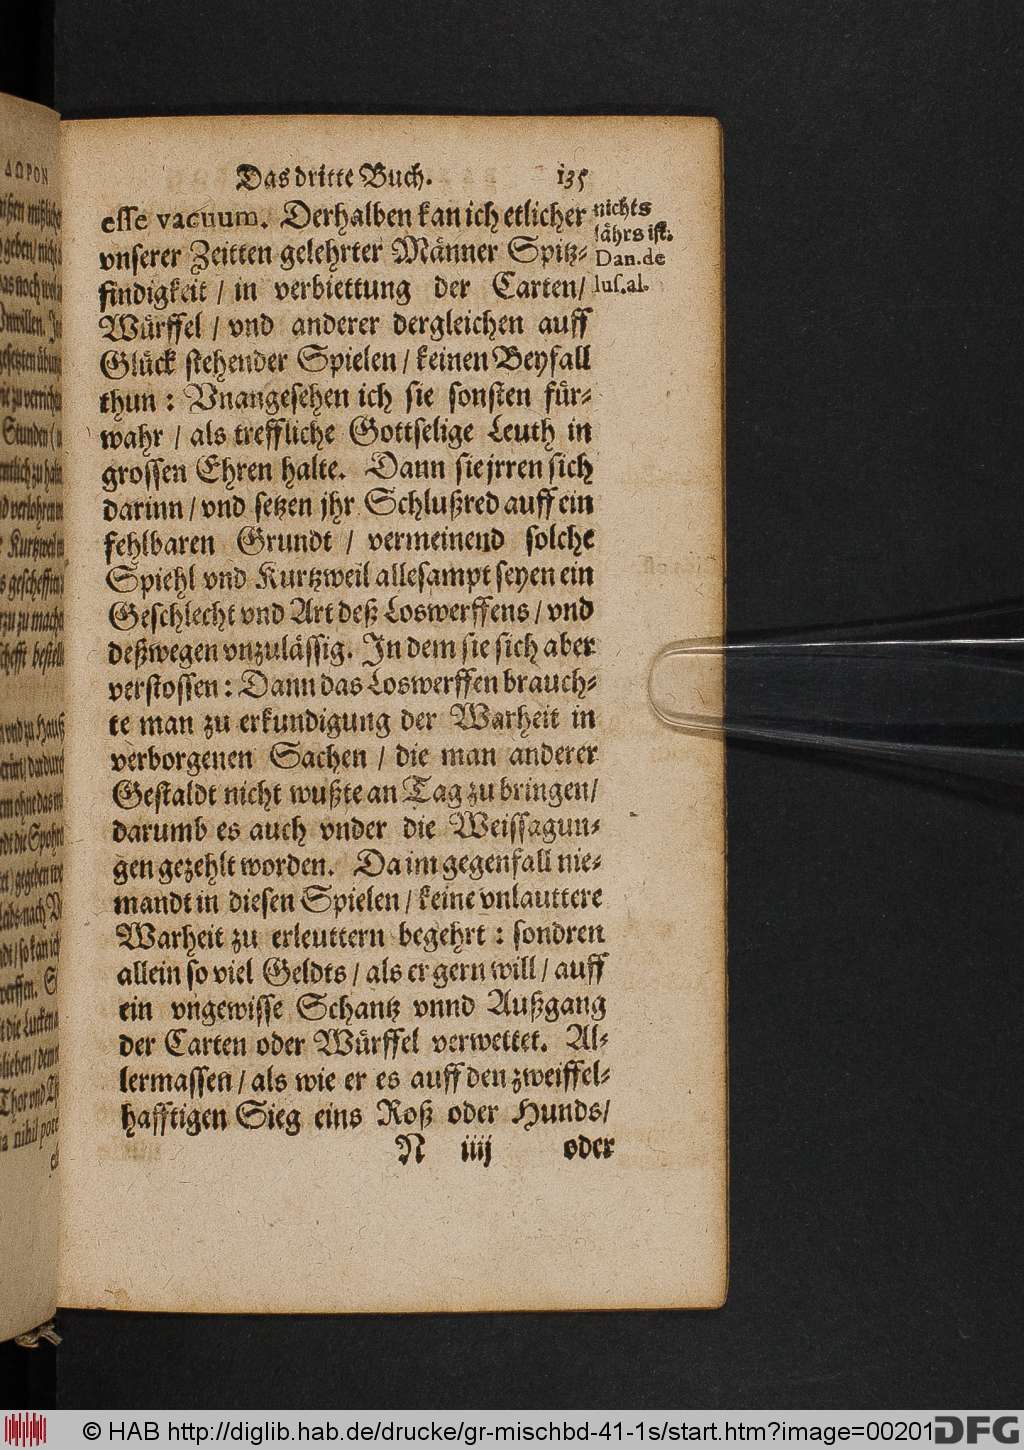 Das dritte Buch. 135
esse vacuum. Derhalben kan ich etlicher
vnserer Zeitten gelehrter Männer Spitz-
findigkeit / in verbiettung der Carten/
Würffel / vnd anderer dergleichen auff
Glück stehender Spielen / keinen Beyfall
thun : Vnangesehen ich sie sonsten für-
wahr / als treffliche Gottselige Leuth in
grossen Ehren halte. Dann sie jrren sich
darinn / vnd setzen jhr Schlußred auff ein
fehlbaren Grundt / vermeinend solche
Spiehl vnd Kurtzweil allesampt seyen ein
Geschlecht vnd Art deß Loswerffens / vnd
deßwegen vnzulässig. In dem sie sich aber
verstossen : Dann das Loswerffen brauch-
te man zu erkundigung der Warheit in
verborgenen Sachen / die man anderer
Gestaldt nicht wußte an Tag zu bringen/
darumb es auch vnder die Weissagun-
gen gezehlt worden. Da im gegenfall nie-
mandt in diesen Spielen / keine vnlauttere
Warheit zu erleuttern begehrt : sondren
allein so viel Geldts / als er gern will / auff
ein vngewisse Schantz vnnd Außgang
der Carten oder Würffel verwettet. Al-
lermassen / als wie er es auff den zweiffel-
hafftigen Sieg eins Roß oder Hunds/
N iiij oder
nichts
lährs ist.
Dan. de
lus. al.
ΔΩΡΟΝ
© HAB http://diglib.hab.de/drucke/gr-mischbd-41-1s/start.htm?image=00201
DFG